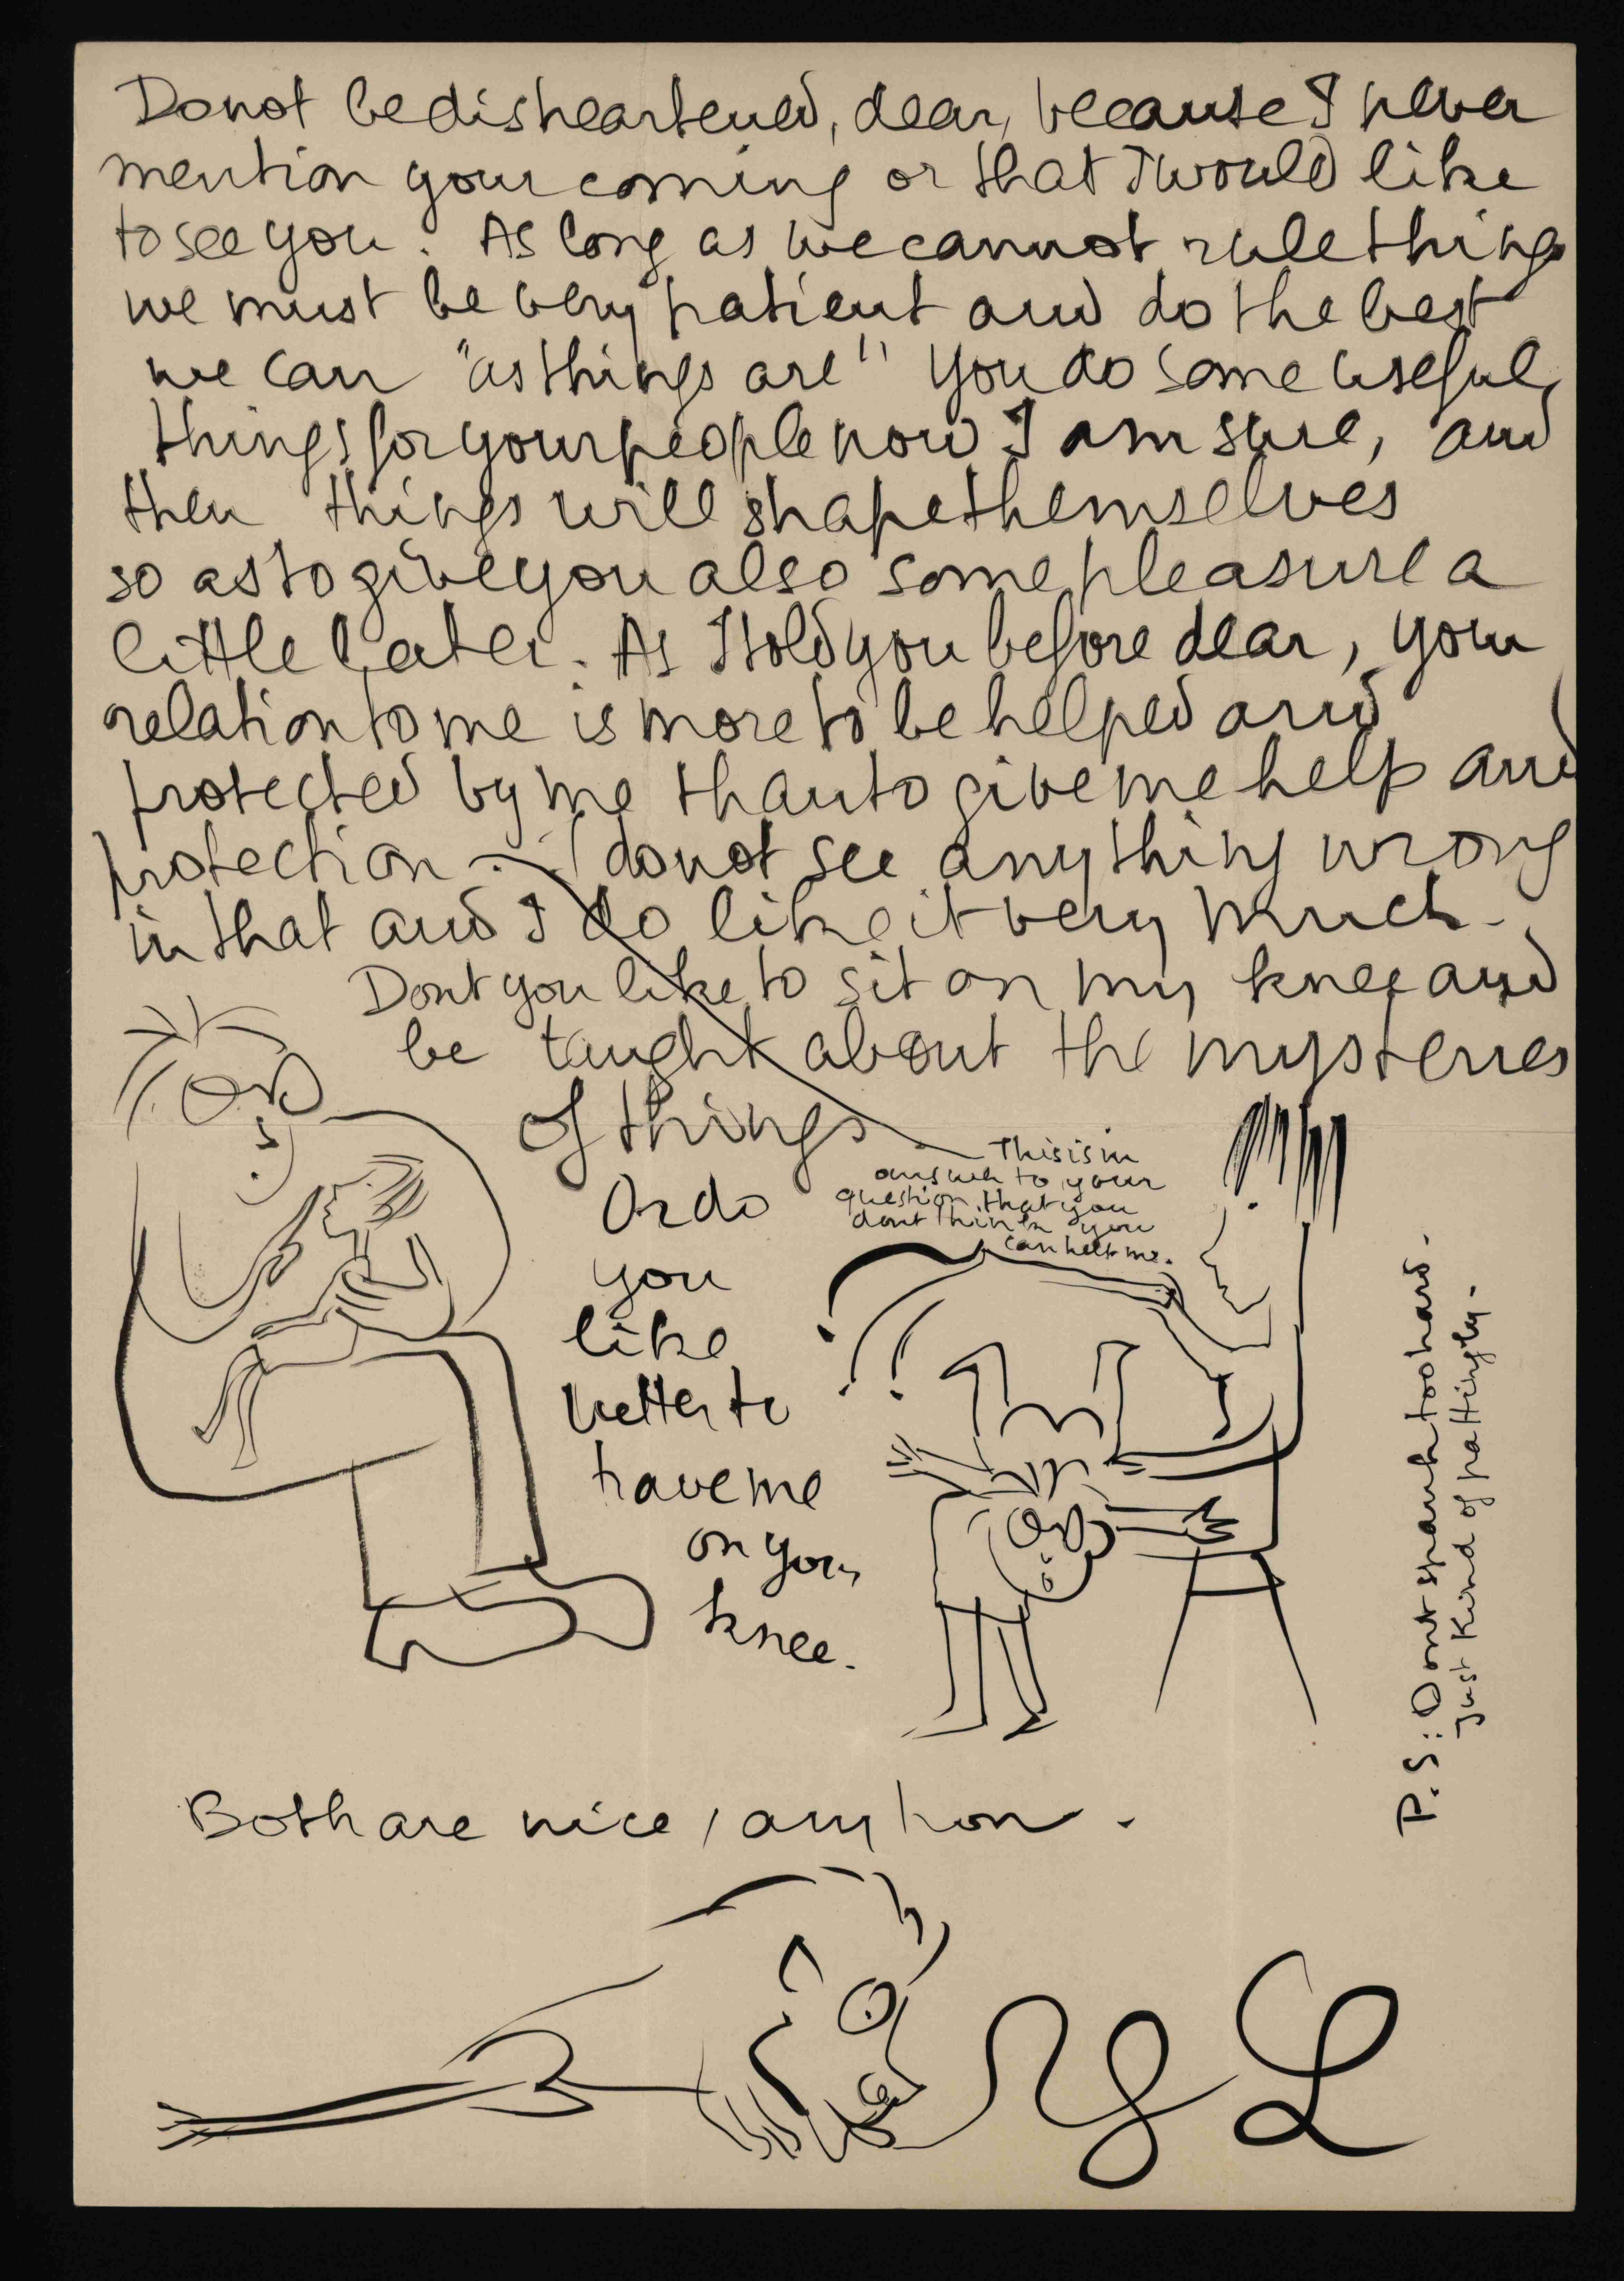 Do not be disheartened, dear, because I never
mention your coming or that I would like
to see you. As long as we cannot rule things
we must be very patient and do the best
we can "as things are" You do some useful
things for your people now I am sure, and
then things will shape themselves
so as to give you also some pleasure a
little later. As I told you before dear, your
relation to me is more to be helped and
protected by me than to give me help and
protection. I do not see anything wrong
in that and I do like it very much.
Dont you like to sit on my knee and
be taught about the mysteries
of things
This is in
answer to your
question that you
dont think you
can help me.
Or do
you
like
better to
have me
on your
knee.
P.S: Dont spank too hard.
Just kind of pattingly.
Both are nice, anyhow.
Y L